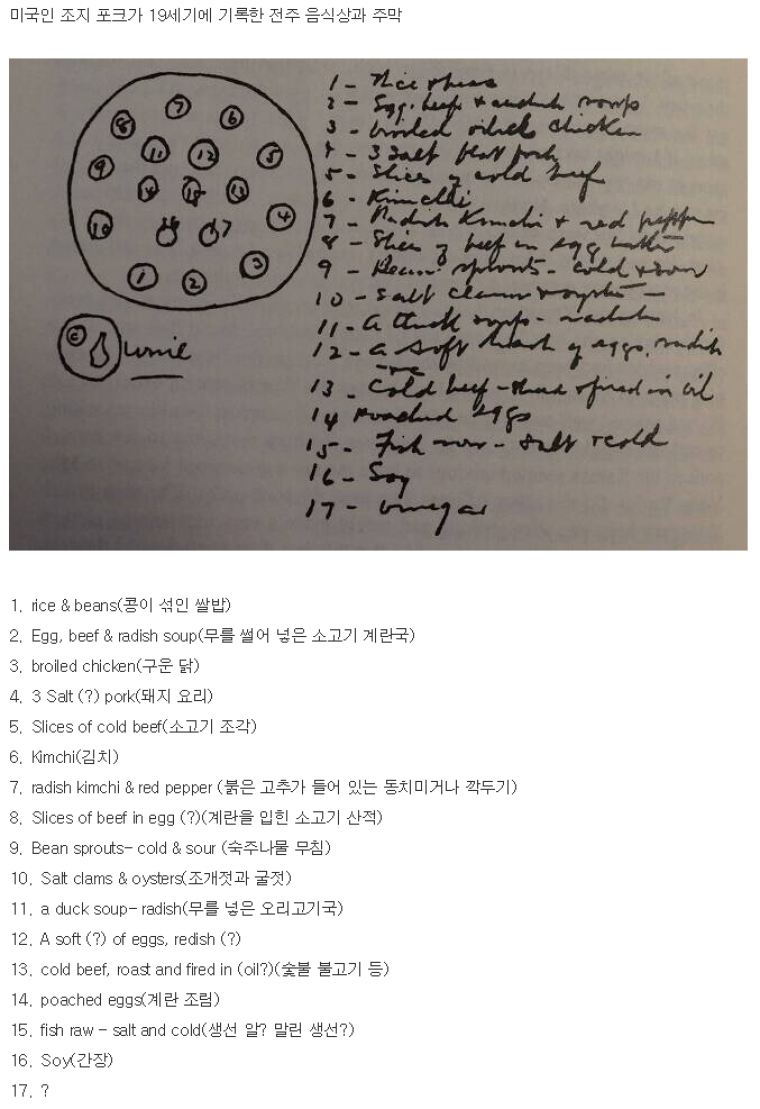 미국인 조지 포크가 19세기에 기록한 전주 음식상과 주막
1 - Rice & beans
2 - Egg, beef & radish soup
3 - broiled chicken
4 - 3 Salt pork
5 - Slices of cold beef
6 - Kimchi
7 - Radish Kimchi & red pepper
8 - Slices of beef in egg
9 - Bean sprouts - cold & sour
10 - Salt clams & oysters -
11 - a duck soup - radish
12 - a soft of eggs, radish
13 - Cold beef - fried in oil
14 Poached eggs
15 - Fish - salt & cold
16 - Soy
17 - Vinegar
7
8 6
11 12 5
9
14 15 13
10 16 17 4
1 2 3
C wine
1. rice & beans(콩이 섞인 쌀밥)
2. Egg, beef & radish soup(무를 썰어 넣은 소고기 계란국)
3. broiled chicken(구운 닭)
4. 3 Salt (?) pork(돼지 요리)
5. Slices of cold beef(소고기 조각)
6. Kimchi(김치)
7. radish kimchi & red pepper (붉은 고추가 들어 있는 동치미거나 깍두기)
8. Slices of beef in egg (?)(계란을 입힌 소고기 산적)
9. Bean sprouts- cold & sour (숙주나물 무침)
10. Salt clams & oysters(조개젓과 굴젓)
11. a duck soup- radish(무를 넣은 오리고기국)
12. A soft (?) of eggs, redish (?)
13. cold beef, roast and fired in (oil?)(숯불 불고기 등)
14. poached eggs(계란 조림)
15. fish raw - salt and cold(생선 알? 말린 생선?)
16. Soy(간장)
17. ?